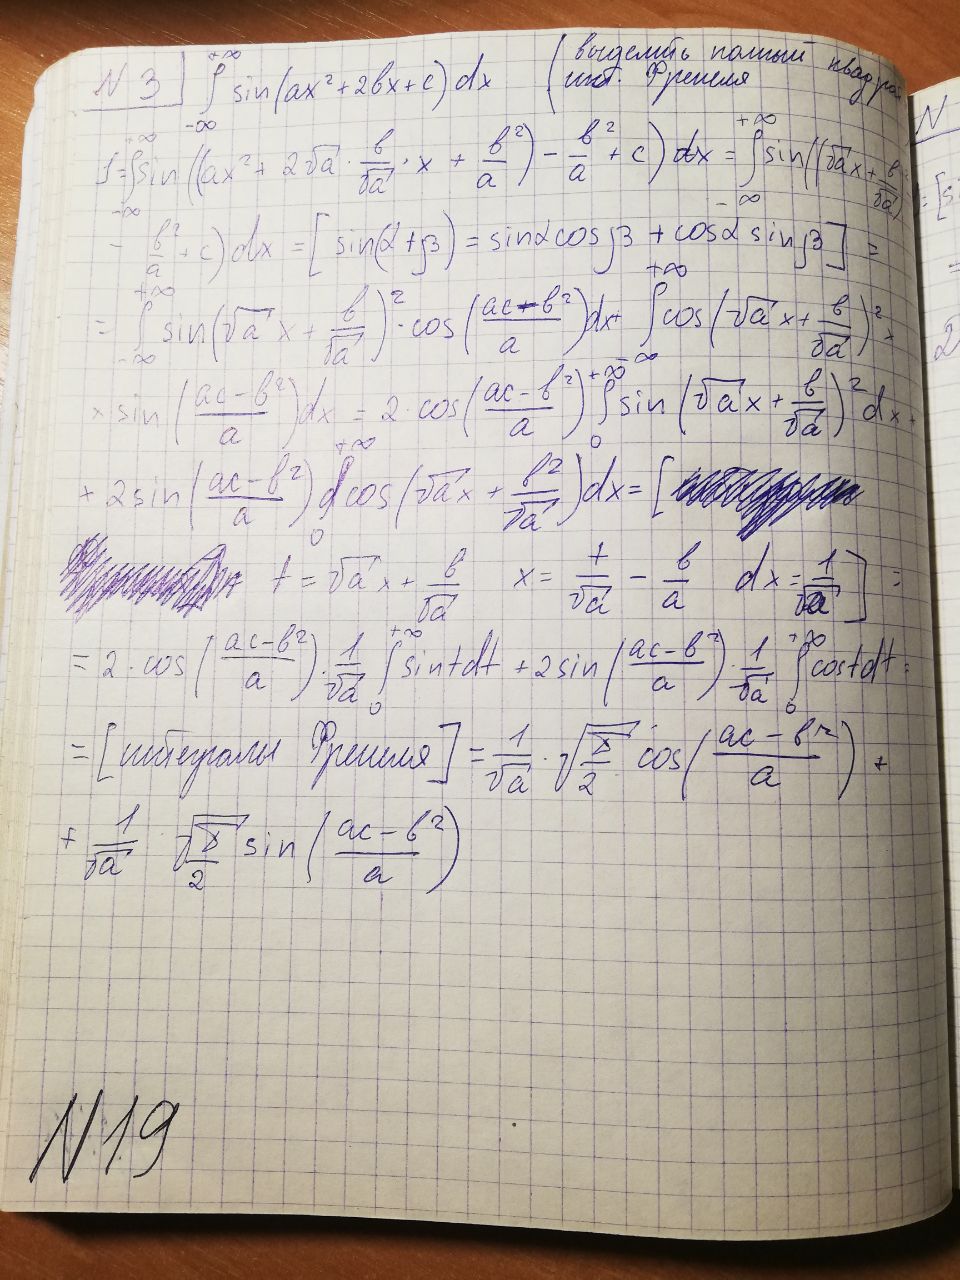 N 3 ∫_{-∞}^{+∞} sin(ax²+2bx+c) dx (выделить полный квадрат
инт. Френеля
J=∫_{-∞}^{+∞} sin((ax²+2√a·b/√a·x+b²/a)-b²/a+c) dx = ∫_{-∞}^{+∞} sin((√ax+b/√a)²
-b²/a+c) dx = [sin(α+β)=sinαcosβ+cosαsinβ] =
= ∫_{-∞}^{+∞} sin(√a x+b/√a)²·cos((ac-b²)/a)dx+ ∫_{-∞}^{+∞} cos(√a x+b/√a)²×
×sin((ac-b²)/a)dx = 2·cos((ac-b²)/a) ∫_0^{+∞} sin(√a x+b/√a)² dx+
+2sin((ac-b²)/a) ∫_0^{+∞} cos(√a x+b²/√a)dx=[
t=√a x+b/√a x=t/√a-b/a dx=1/√a] =
=2·cos((ac-b²)/a)·1/√a ∫_0^{+∞} sintdt+2sin((ac-b²)/a)·1/√a ∫_0^{+∞} costdt=
=[интегралы Френеля]=1/√a·√(π/2) cos((ac-b²)/a)+
+1/√a √(π/2) sin((ac-b²)/a)
N19
N